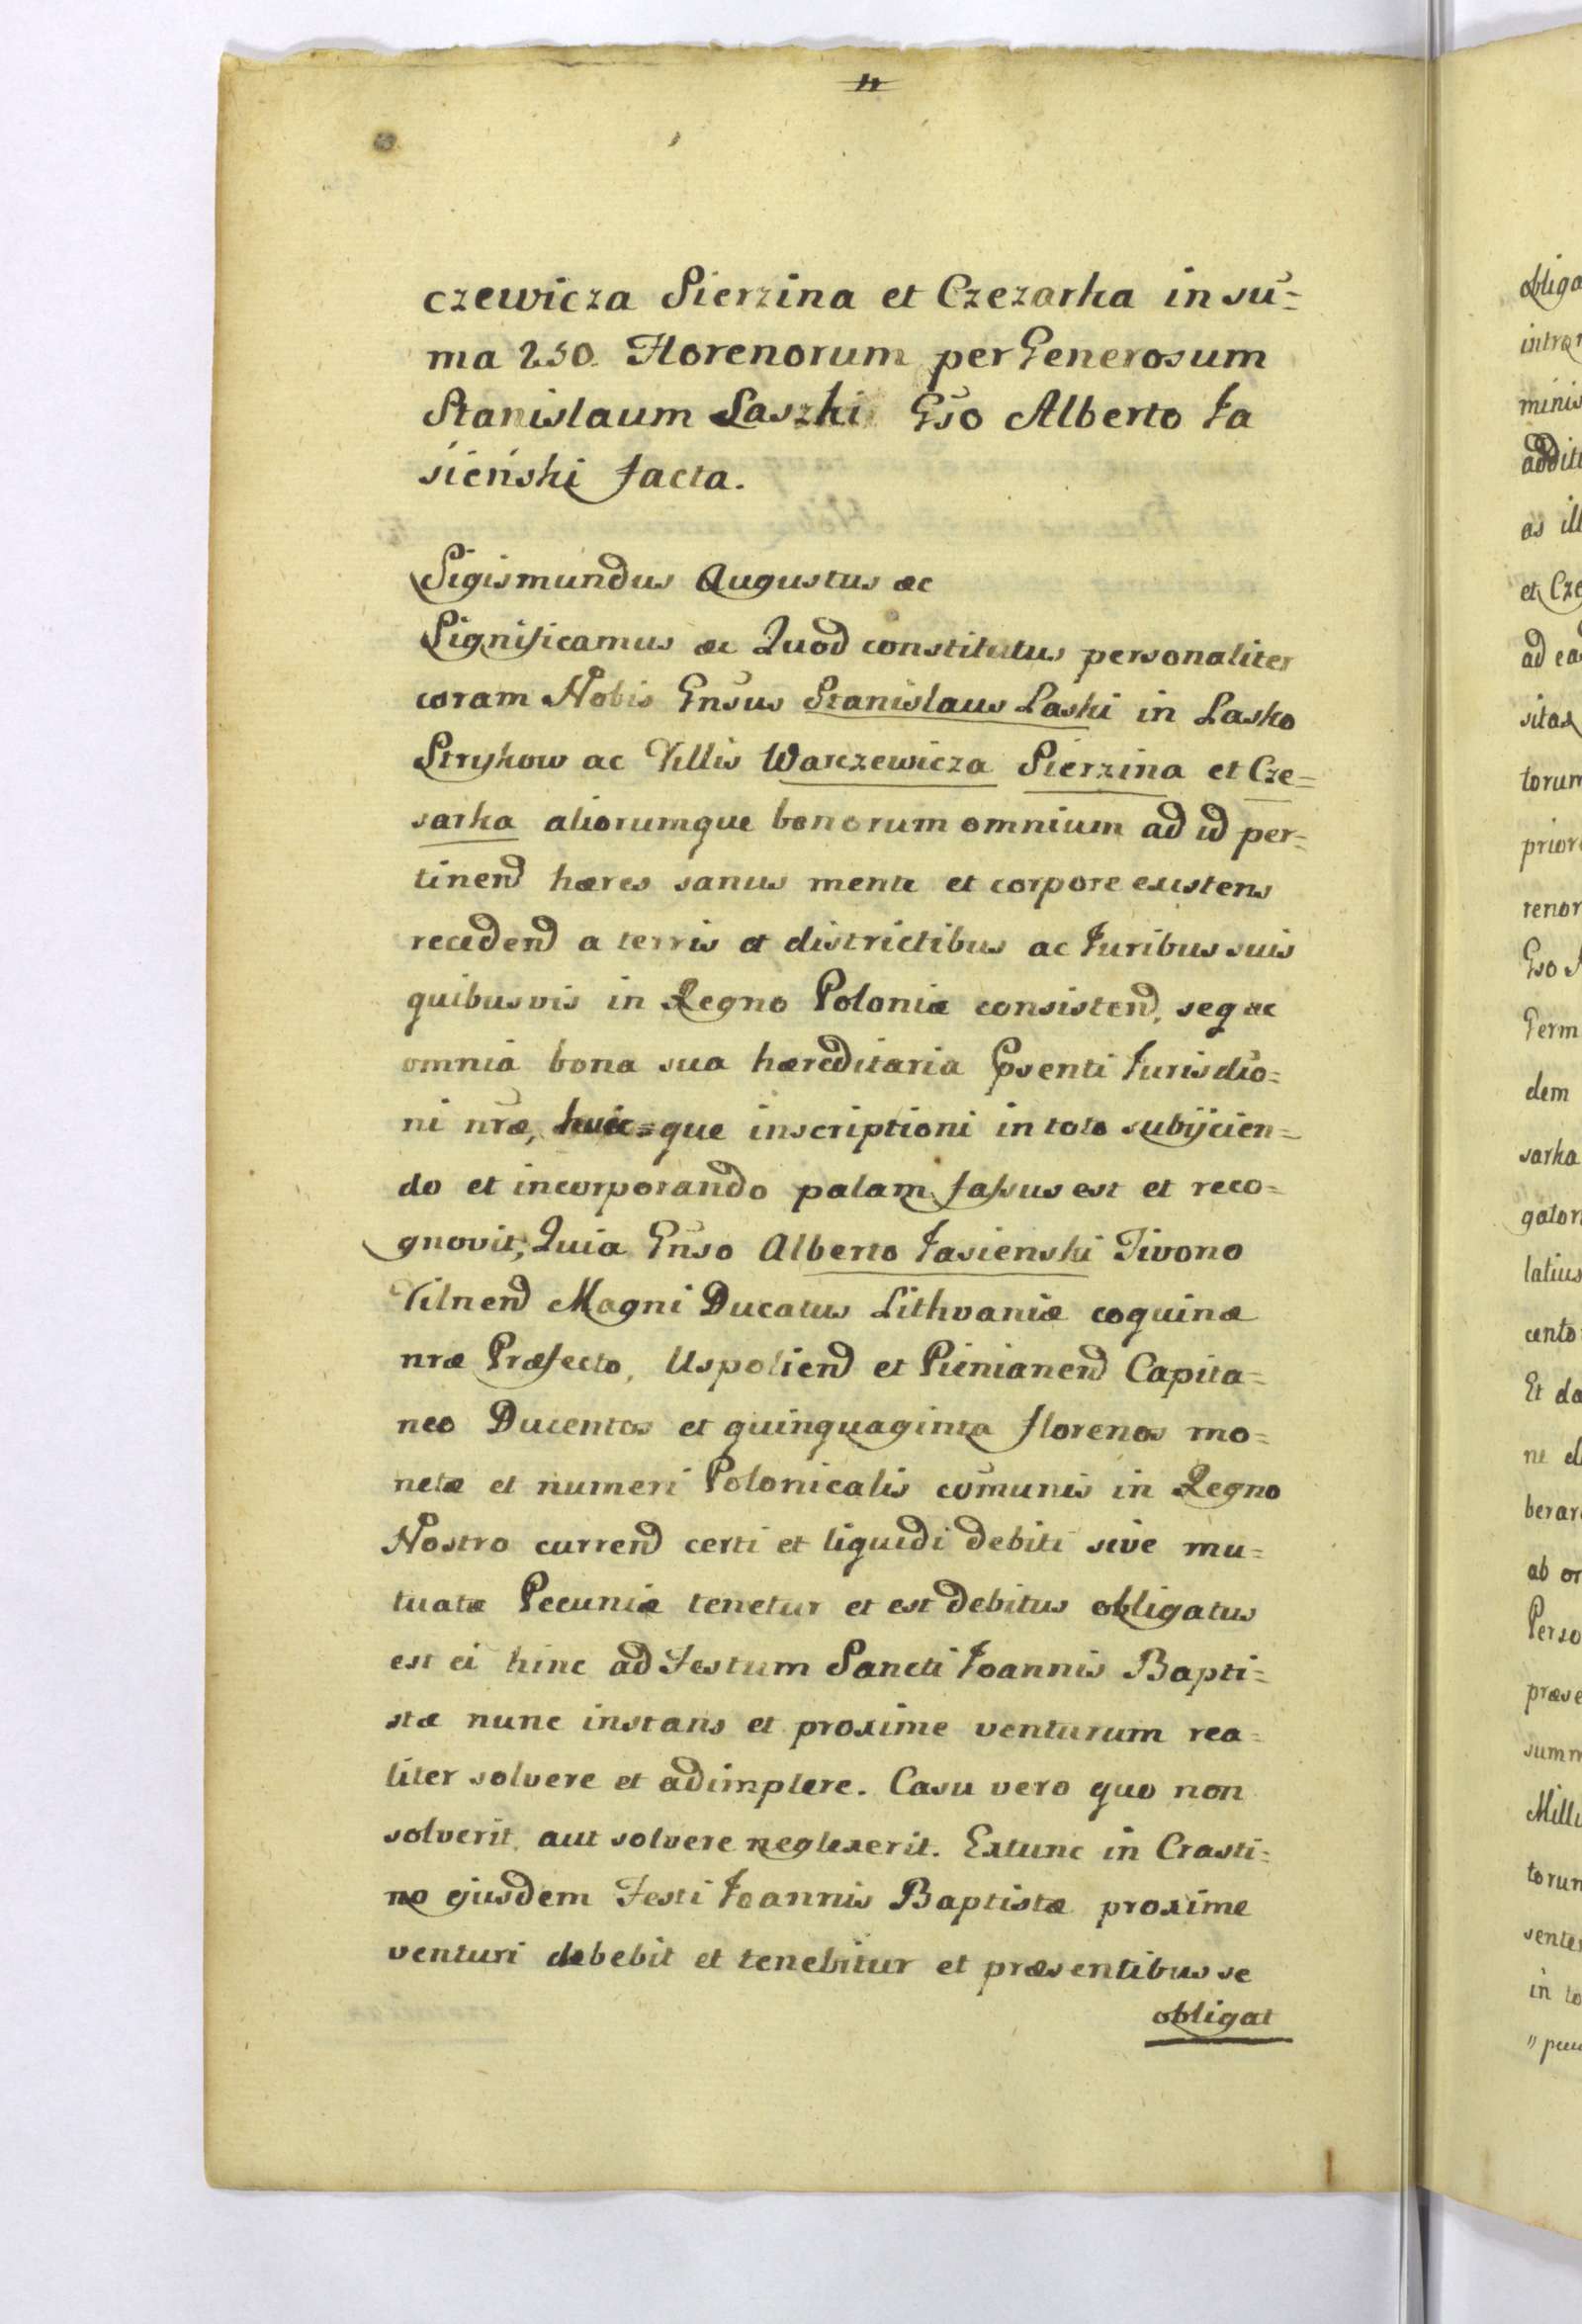 czewicza Sierzina et Czezarka in su̅=
ma 250. Florenorum per Generosum
Stanislaum Laszki Gso Alberto Ja
sieński facta.
Sigismundus Augustus æc
Significamus æc Quod constitutus personaliter
coram Nobis Gnsus Stanislaus Laski in Lasko
Strykow ac Villis Warczewicza Sierzina et Cze=
sarka aliorumque bonorum omnium ad id per=
tinend hæres sanus mente et corpore existens
recedend a terris et districtibus ac Juribus suis
quibusvis in Regno Poloniæ consistend, seq ac
omnia bona sua hæreditaria Psenti Jurisdio=
ni nræ, huic=que inscriptioni in toto subijcien=
do et incorporando palam fassus est et reco=
gnovit, Quia Gnso Alberto Jasienski Tivono
Vilnend Magni Ducatus Lithvaniæ coquinæ
nræ Præfecto, Uspoliend et Pienianend Capita=
neo Ducentos et quinquaginta florenos mo=
netæ et numeri Polonicalis comunis in Regno
Nostro currend certi et liquidi debiti sive mu=
tuatæ Pecuniæ tenetur et est debitus obligatus
est ei hinc ad Festum Sancti Joannis Bapti=
stæ nunc instans et proxime venturum rea=
liter solvere et adimplere. Casu vero quo non
solverit aut solvere neglexerit. Extunc in Crasti=
no ejusdem Festi Joannis Baptistæ proxime
venturi debebit et tenebitur et præsentibus se
obligat
obliga
minis
et Cze
ad ea
sitas
torum
prior
Gso A
dem
sarka
gator
latius
cento
Et da
ab or
Perso
præse
summ
Mill
torun